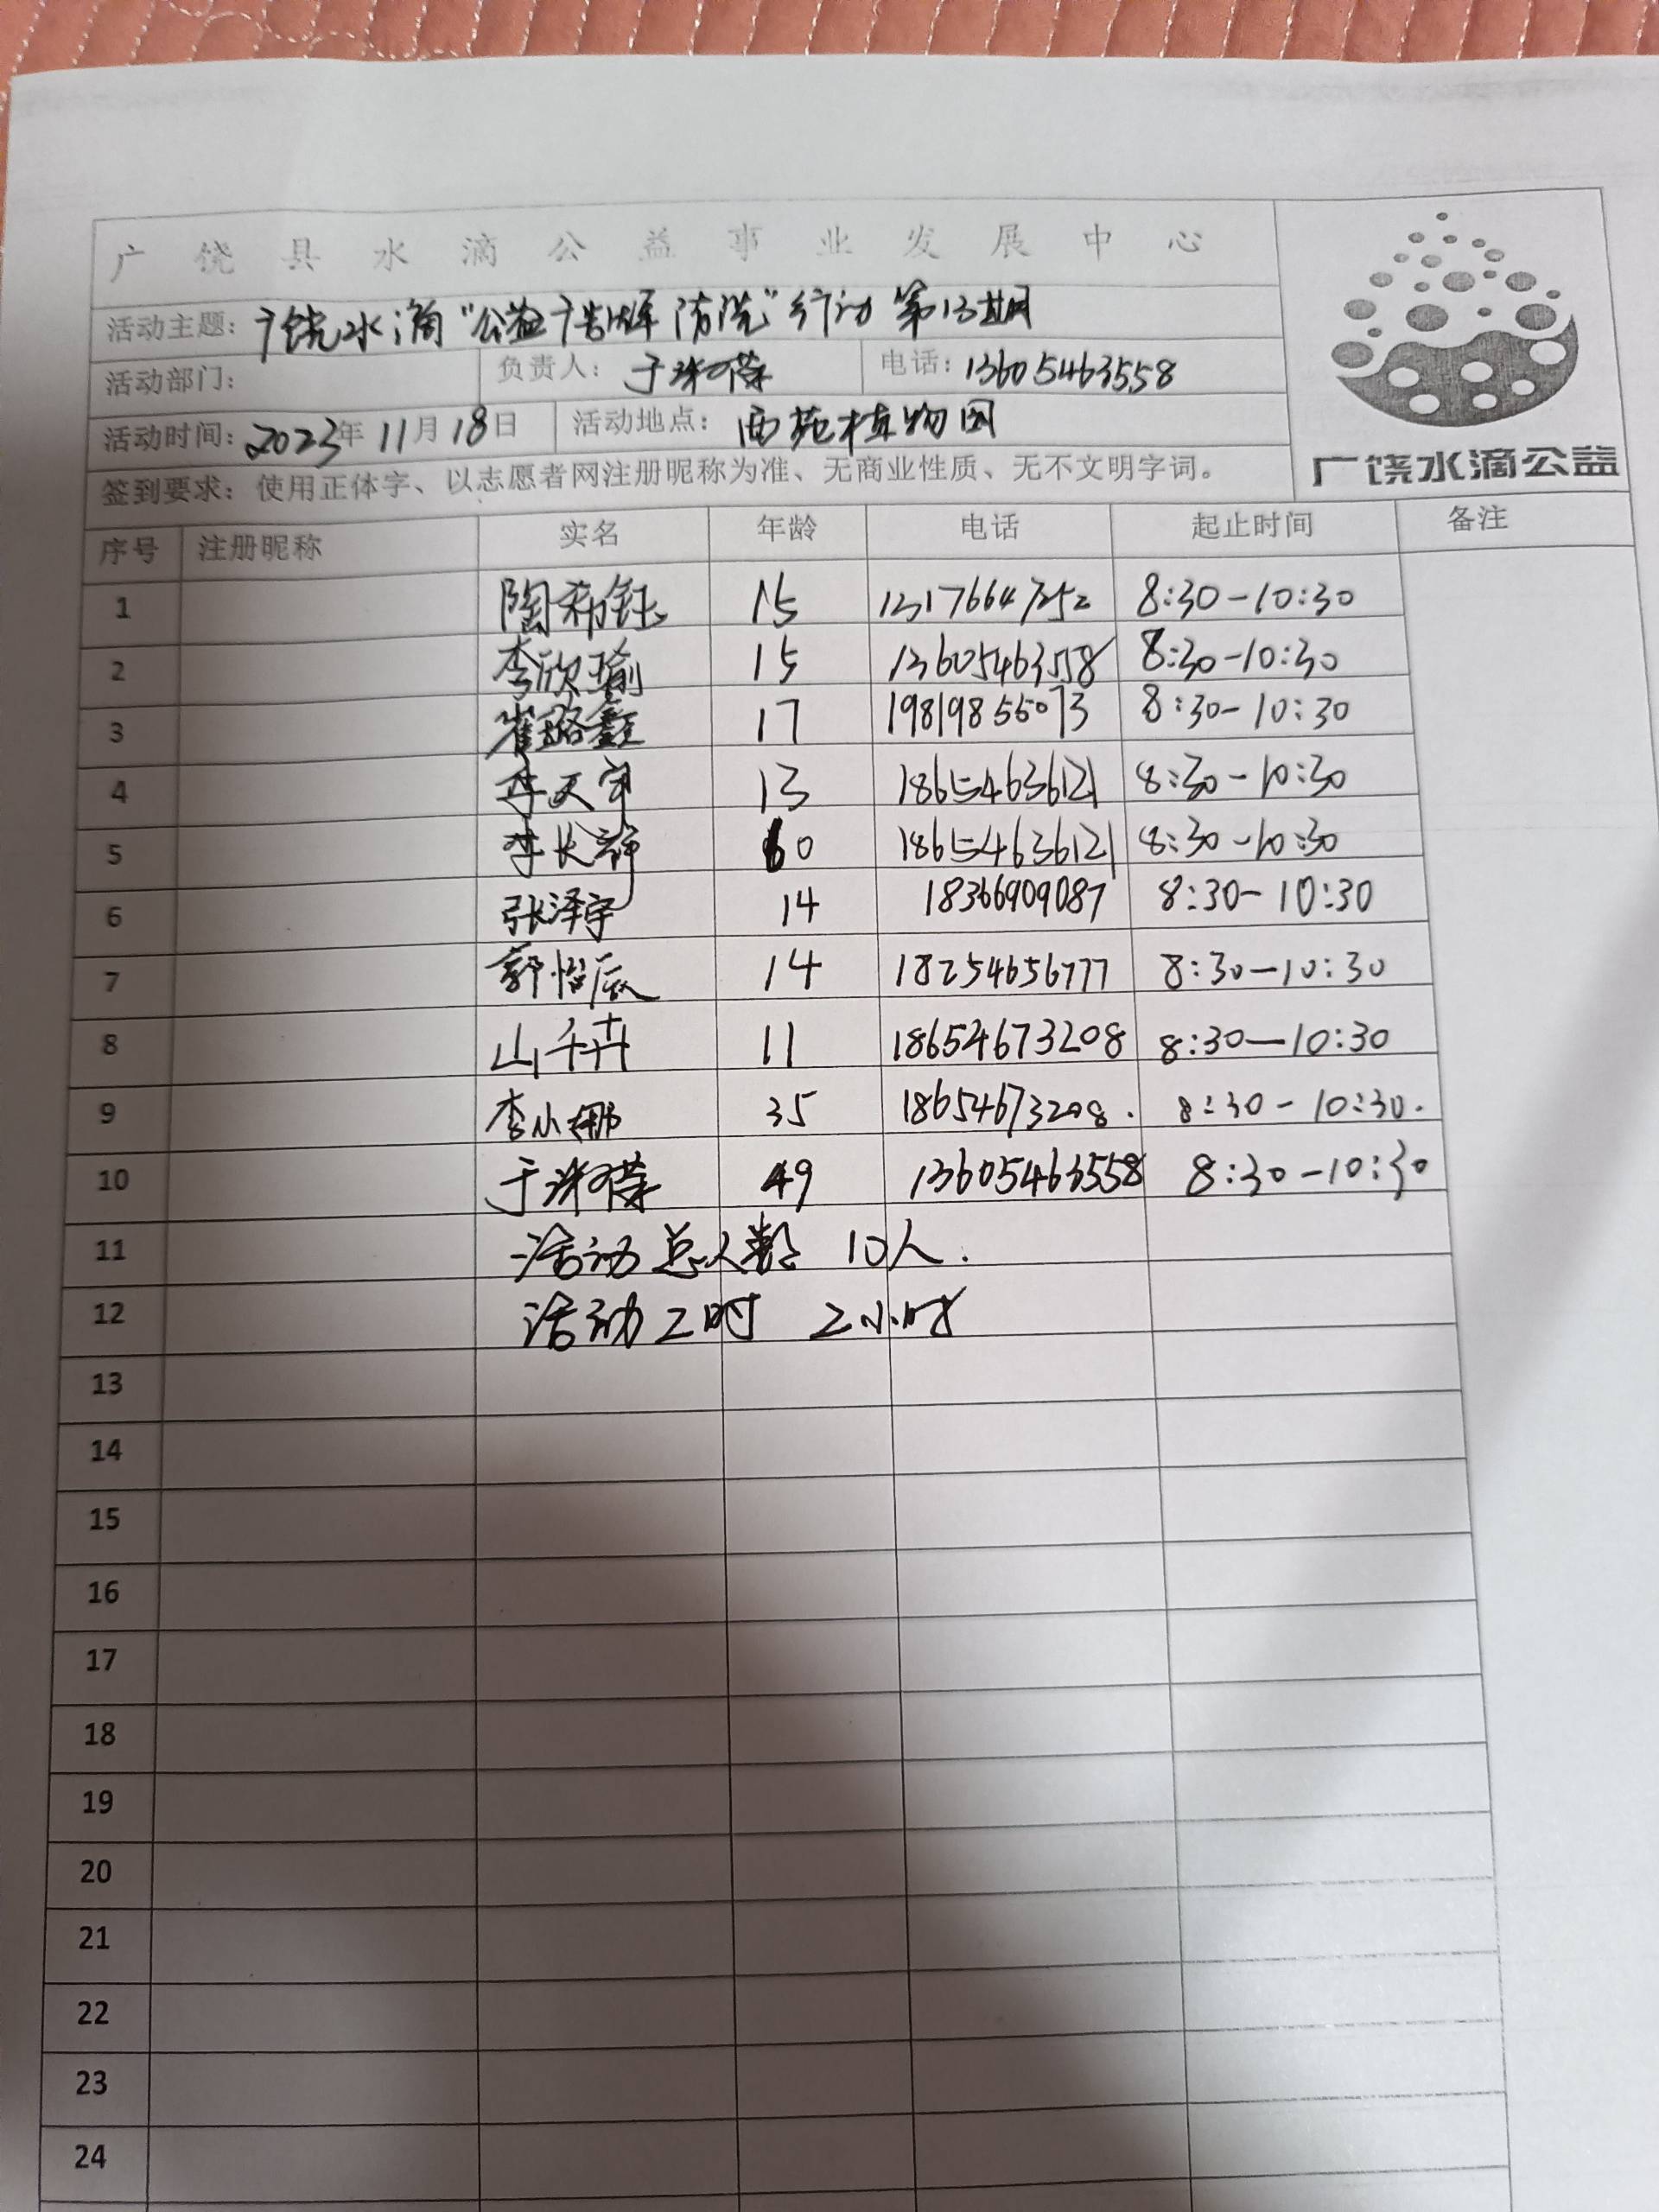 广饶县水滴公益事业发展中心
活动主题：广饶水滴“公益广告牌清洗”行动 第13期
活动部门： 负责人：于 电话：13605463558
活动时间：2023年11月18日 活动地点：西苑植物园
签到要求：使用正体字、以志愿者网注册昵称为准、无商业性质、无不文明字词。
广饶水滴公益
序号 注册昵称 实名 年龄 电话 起止时间 备注
1 陶希钰 15 8:30-10:30
2 李欣瑜 15 13605463558 8:30-10:30
3 崔 鑫 17 19819855073 8:30-10:30
4 李天宇 13 18654636121 8:30-10:30
5 李长 60 18654636121 8:30-10:30
6 张泽宇 14 18366909087 8:30-10:30
7 郭怡辰 14 18254656777 8:30-10:30
8 山千卉 11 18654673208 8:30-10:30
9 李小娜 35 18654673208. 8:30-10:30.
10 于 49 13605463558 8:30-10:30
11 活动总人数 10人.
12 活动工时 2小时
13
14
15
16
17
18
19
20
21
22
23
24